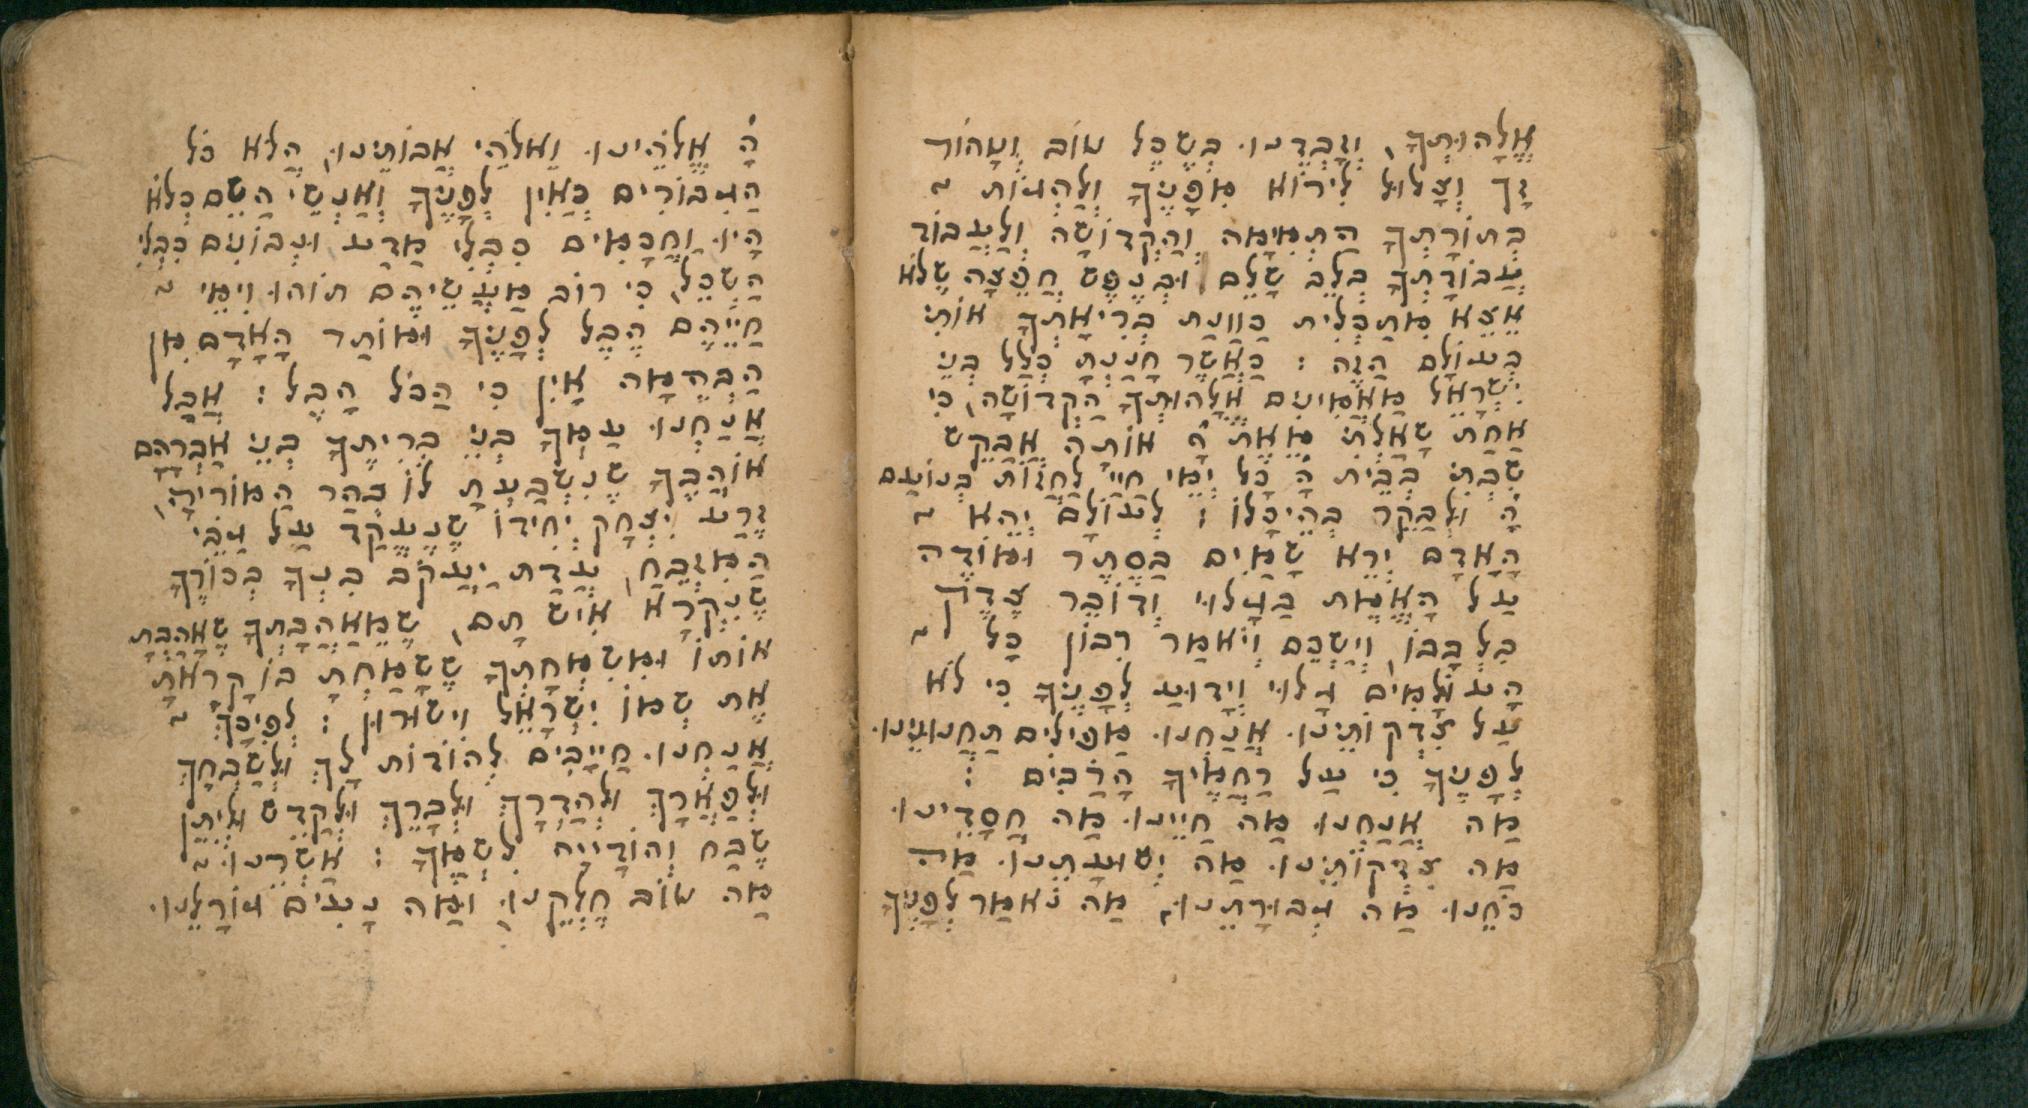 אֱלָהוּתְךָ, וְזָבְדֵנוּ בְּשֶׂכֶל טוֹב וְטָהוֹר
זָךְ וְצָלוּל לִירוֹא מִפָּנֶיךָ וְלַהְגוֹת ~
בְּתוֹרָתְךָ הַתְּמִימָה וְהַקְדוֹשָׁה וְלַעֲבוֹד
עֲבוֹדָתְךָ בְּלֵב שָׁלֵם וּבְנֶפֶשׁ חֲפֵצָה שֶׁלֹא
אֵצֵא מִתַּכְלִית כַּוָונַת בְּרִיאָתְךָ אוֹתִי
בְּעוֹלָם הַזֶה : כַּאֲשֶׁר חָנַנְתָּ כְּלַל בְּנֵי
יִשְׂרָאֵל מַאֲמִינִים אֱלָהוּתְךָ הַקְדוֹשָׁה, כִּי
אַחַת שָׁאַלְתִּי מֵאֵת הָ׳ אוֹתָהּ אֲבַקֵשׁ
שִׁבְתִּי בְּבֵית הָ׳ כָּל יְמֵי חַיַי לַחֲזוֹת בְּנוֹעַם
הָ׳ וּלְבַקֵר בְּהֵיכָלוֹ : לְעוֹלָם יְהֵא ~
הָאָדָם יְרֵא שָׁמַיִם בַּסֵתֶר וּמוֹדֶה
עַל הָאֱמֶת בַּגָלוּי וְדוֹבֵר צֶדֶק
בִּלְבָבוֹ, וְיַשְׁכֵּם וְיֹאמַר רִבּוֹן כָּל ~
הָעוֹלָמִים גָלוּי וְיָדוּעַ לְפָנֶיךָ כִּי לֹא
עַל צִדְקוֹתֵינוּ אֲנַחְנוּ מַפִּילִים תַּחֲנוּנֵינוּ
לְפָנֶיךָ כִּי עַל רַחֲמֶיךָ הָרַבִּים :
מַה אֲנַחְנוּ מַה חַיֵינוּ מַה חֲסָדֵינוּ
מַה צִדְקוֹתֵינוּ מַה יְשׁוּעָתֵנוּ מַה
כֹּחֵנוּ מַה גְבוּרָתֵנוּ, מַה נֹאמַר לְפָנֶיךָ
הָ׳ אֱלֹהֵינוּ וֵאלֹהֵי אֲבוֹתֵינוּ, הֲלֹא כֹּל
הַגִבּוֹרִים כְּאַיִן לְפָנֶיךָ וְאַנְשֵׁי הַשֵׁם כְּלֹא
הָיוּ וַחֲכָמִים כִּבְלִי מַדַע וּנְבוֹנִים כִּבְלִי
הַשְׂכֵּל, כִּי רוֹב מַעֲשֵׂיהֶם תּוֹהוּ וִימֵי ~
חַיֵיהֶם הֶבֶל לְפָנֶיךָ וּמוֹתַר הָאָדָם מִן
הַבְּהֵמָה אָיִן כִּי הַכֹּל הָבֶל : אֲבָל
אֲנַחְנוּ עַמְךָ בְּנֵי בְּרִיתֶךָ בְּנֵי אַבְרָהָם
אוֹהַבֶךָ שֶׁנִשְׁבַּעְתָּ לוֹ בְּהַר הַמוֹרִיָה,
זֶרַע יִצְחָק יְחִידוֹ שֶׁנֶעֱקַד עַל גַבֵּי
הַמִזְבֵּחַ, עֲדַת יַעֲקֹב בִּנְךָ בְּכוֹרֶךָ
שֶׁנִקְרָא אִישׁ תָּם, שֶׁמֵאַהֲבָתְךָ שֶׁאָהַבְתָּ
אוֹתוֹ וּמִשִׂמְחָתְךָ שֶׁשָׂמַחְתָּ בּוֹ קָרָאתָ
אֶת שְׁמוֹ יִשְׂרָאֵל וִישׁוּרוּן : לְפִיכָךְ ~
אֲנַחְנוּ חַיָיבִים לְהוֹדוֹת לָךְ וּלְשַׁבְּחָךְ
וּלְפַאֲרָךְ וּלְהַדְרָךְ וּלְבָרֵךְ וּלְקַדֵשׁ וְלִיתֵּן
שֶׁבַח וְהוֹדָיָיה לִשְׁמֶךָ : אַשְׁרֵנוּ ~
מַה טוֹב חֶלְקֵנוּ וּמַה נָעִים גוֹרָלֵנוּ